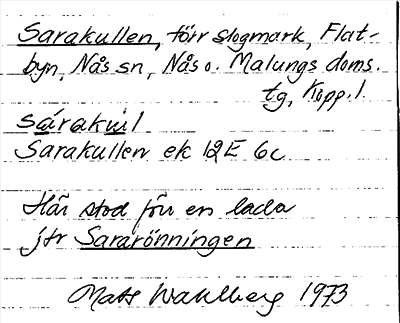 Sarakullen, förr slogmark, Flat-
byn, Nås sn, Nås o. Malungs doms.
tg, Kopp. l.
sárakul
Sarakullen ek 12E 6c
Här stod förr en lada
jfr Sararönningen
Mats Wahlberg 1973